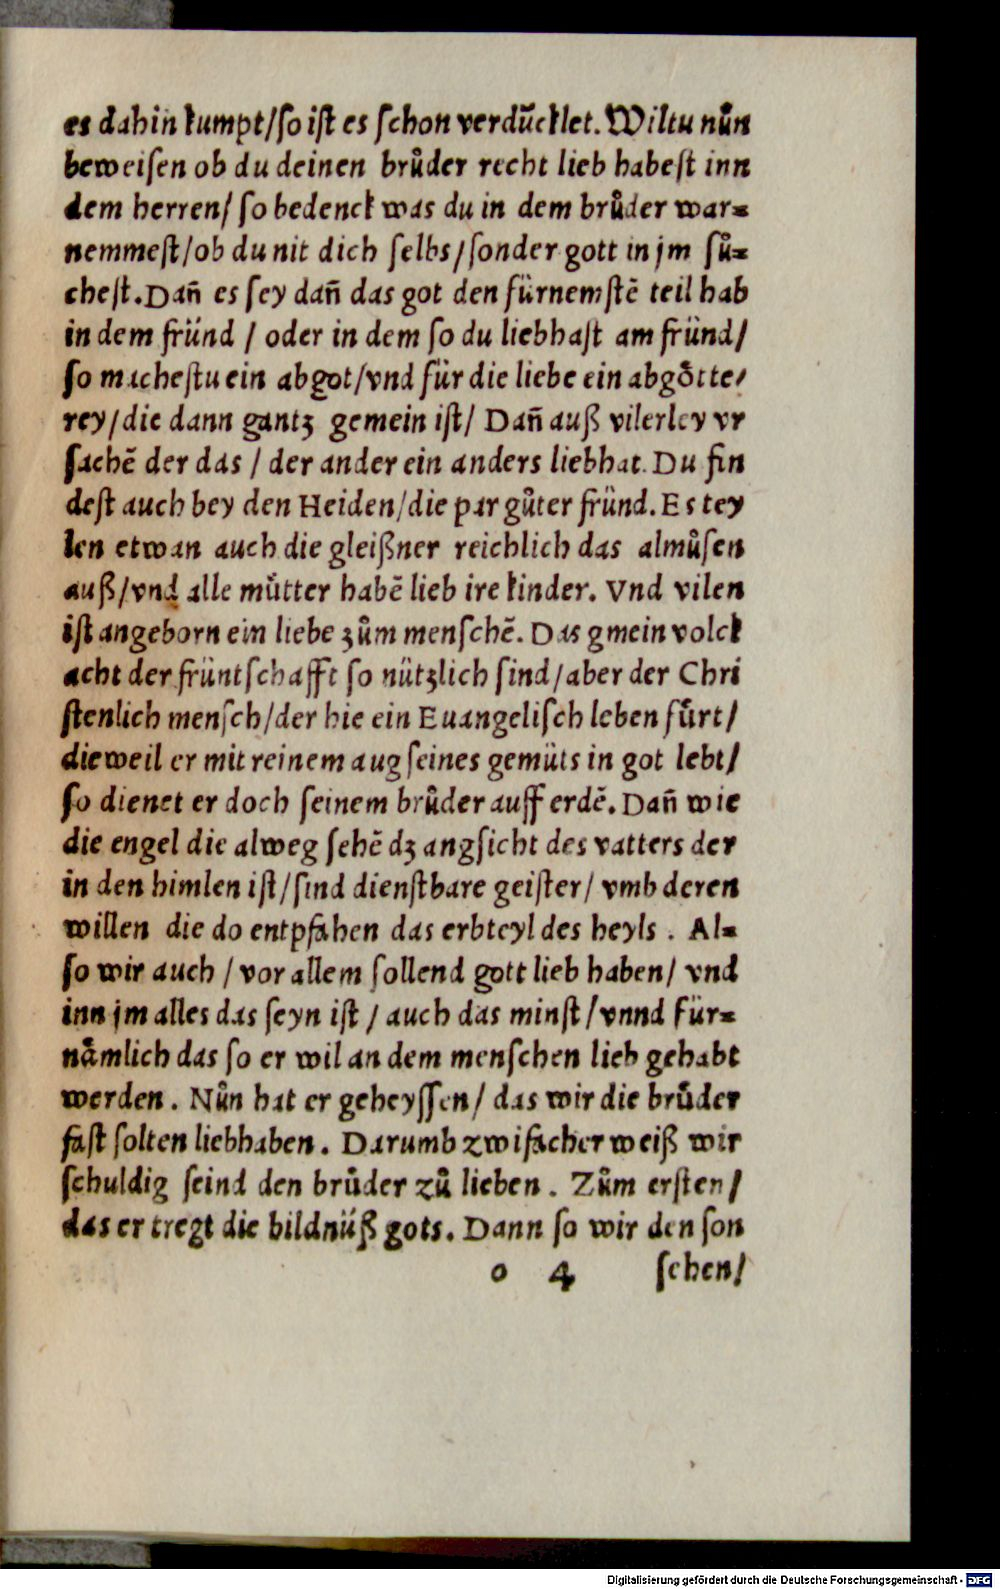 es dahin kumpt/ſo iſt es ſchon verdu̔cklet. Wiltu nůn
beweiſen ob du deinen brůder recht lieb habeſt inn
dem herren/ ſo bedenck was du in dem brůder war⸗
nemmeſt/ob du nit dich ſelbs/ſonder gott in jm ſů⸗
cheſt. Dañ es ſey dañ das got den fürnemſtē teil hab
in dem fründ / oder in dem ſo du liebhaſt am fründ/
ſo macheſtu ein abgot/vnd für die liebe ein abgo̓tte⸗
rey/die dann gantʒ gemein iſt/ Dañ auß vilerley vr
ſachē der das / der ander ein anders liebhat. Du fin
deſt auch bey den Heiden/die par gůter fründ. Es tey
len etwan auch die gleißner reichlich das almůſen
auß/vnd alle mu̓tter habē lieb ire kinder. Vnd vilen
iſt angeborn ein liebe ʒům menſchē. Das gmein volck
acht der früntſchafft ſo nütʒlich ſind/aber der Chri
ſtenlich menſch/der hie ein Euangeliſch leben fu̓rt/
dieweil er mit reinem aug ſeines gemüts in got lebt/
ſo dienet er doch ſeinem brůder auff erdē. Dañ wie
die engel die alweg ſehē dʒ angſicht des vatters der
in den himlen iſt/ſind dienſtbare geiſter/ vmb deren
willen die do entpfahen das erbteyl des heyls . Al⸗
ſo wir auch / vor allem ſollend gott lieb haben/ vnd
inn jm alles das ſeyn iſt / auch das minſt/vnnd für⸗
nåmlich das ſo er wil an dem menſchen lieb gehabt
werden . Nůn hat er geheyſſen/ das wir die brůder
faſt ſolten liebhaben . Darumb zwifacher weiß wir
ſchuldig ſeind den brůder zů lieben . Zům erſten/
das er tregt die bildnüß gots. Dann ſo wir den ſon
o 4 ſehen/
Digitalisierung gefördert durch die Deutsche Forschungsgemeinschaft - DFG